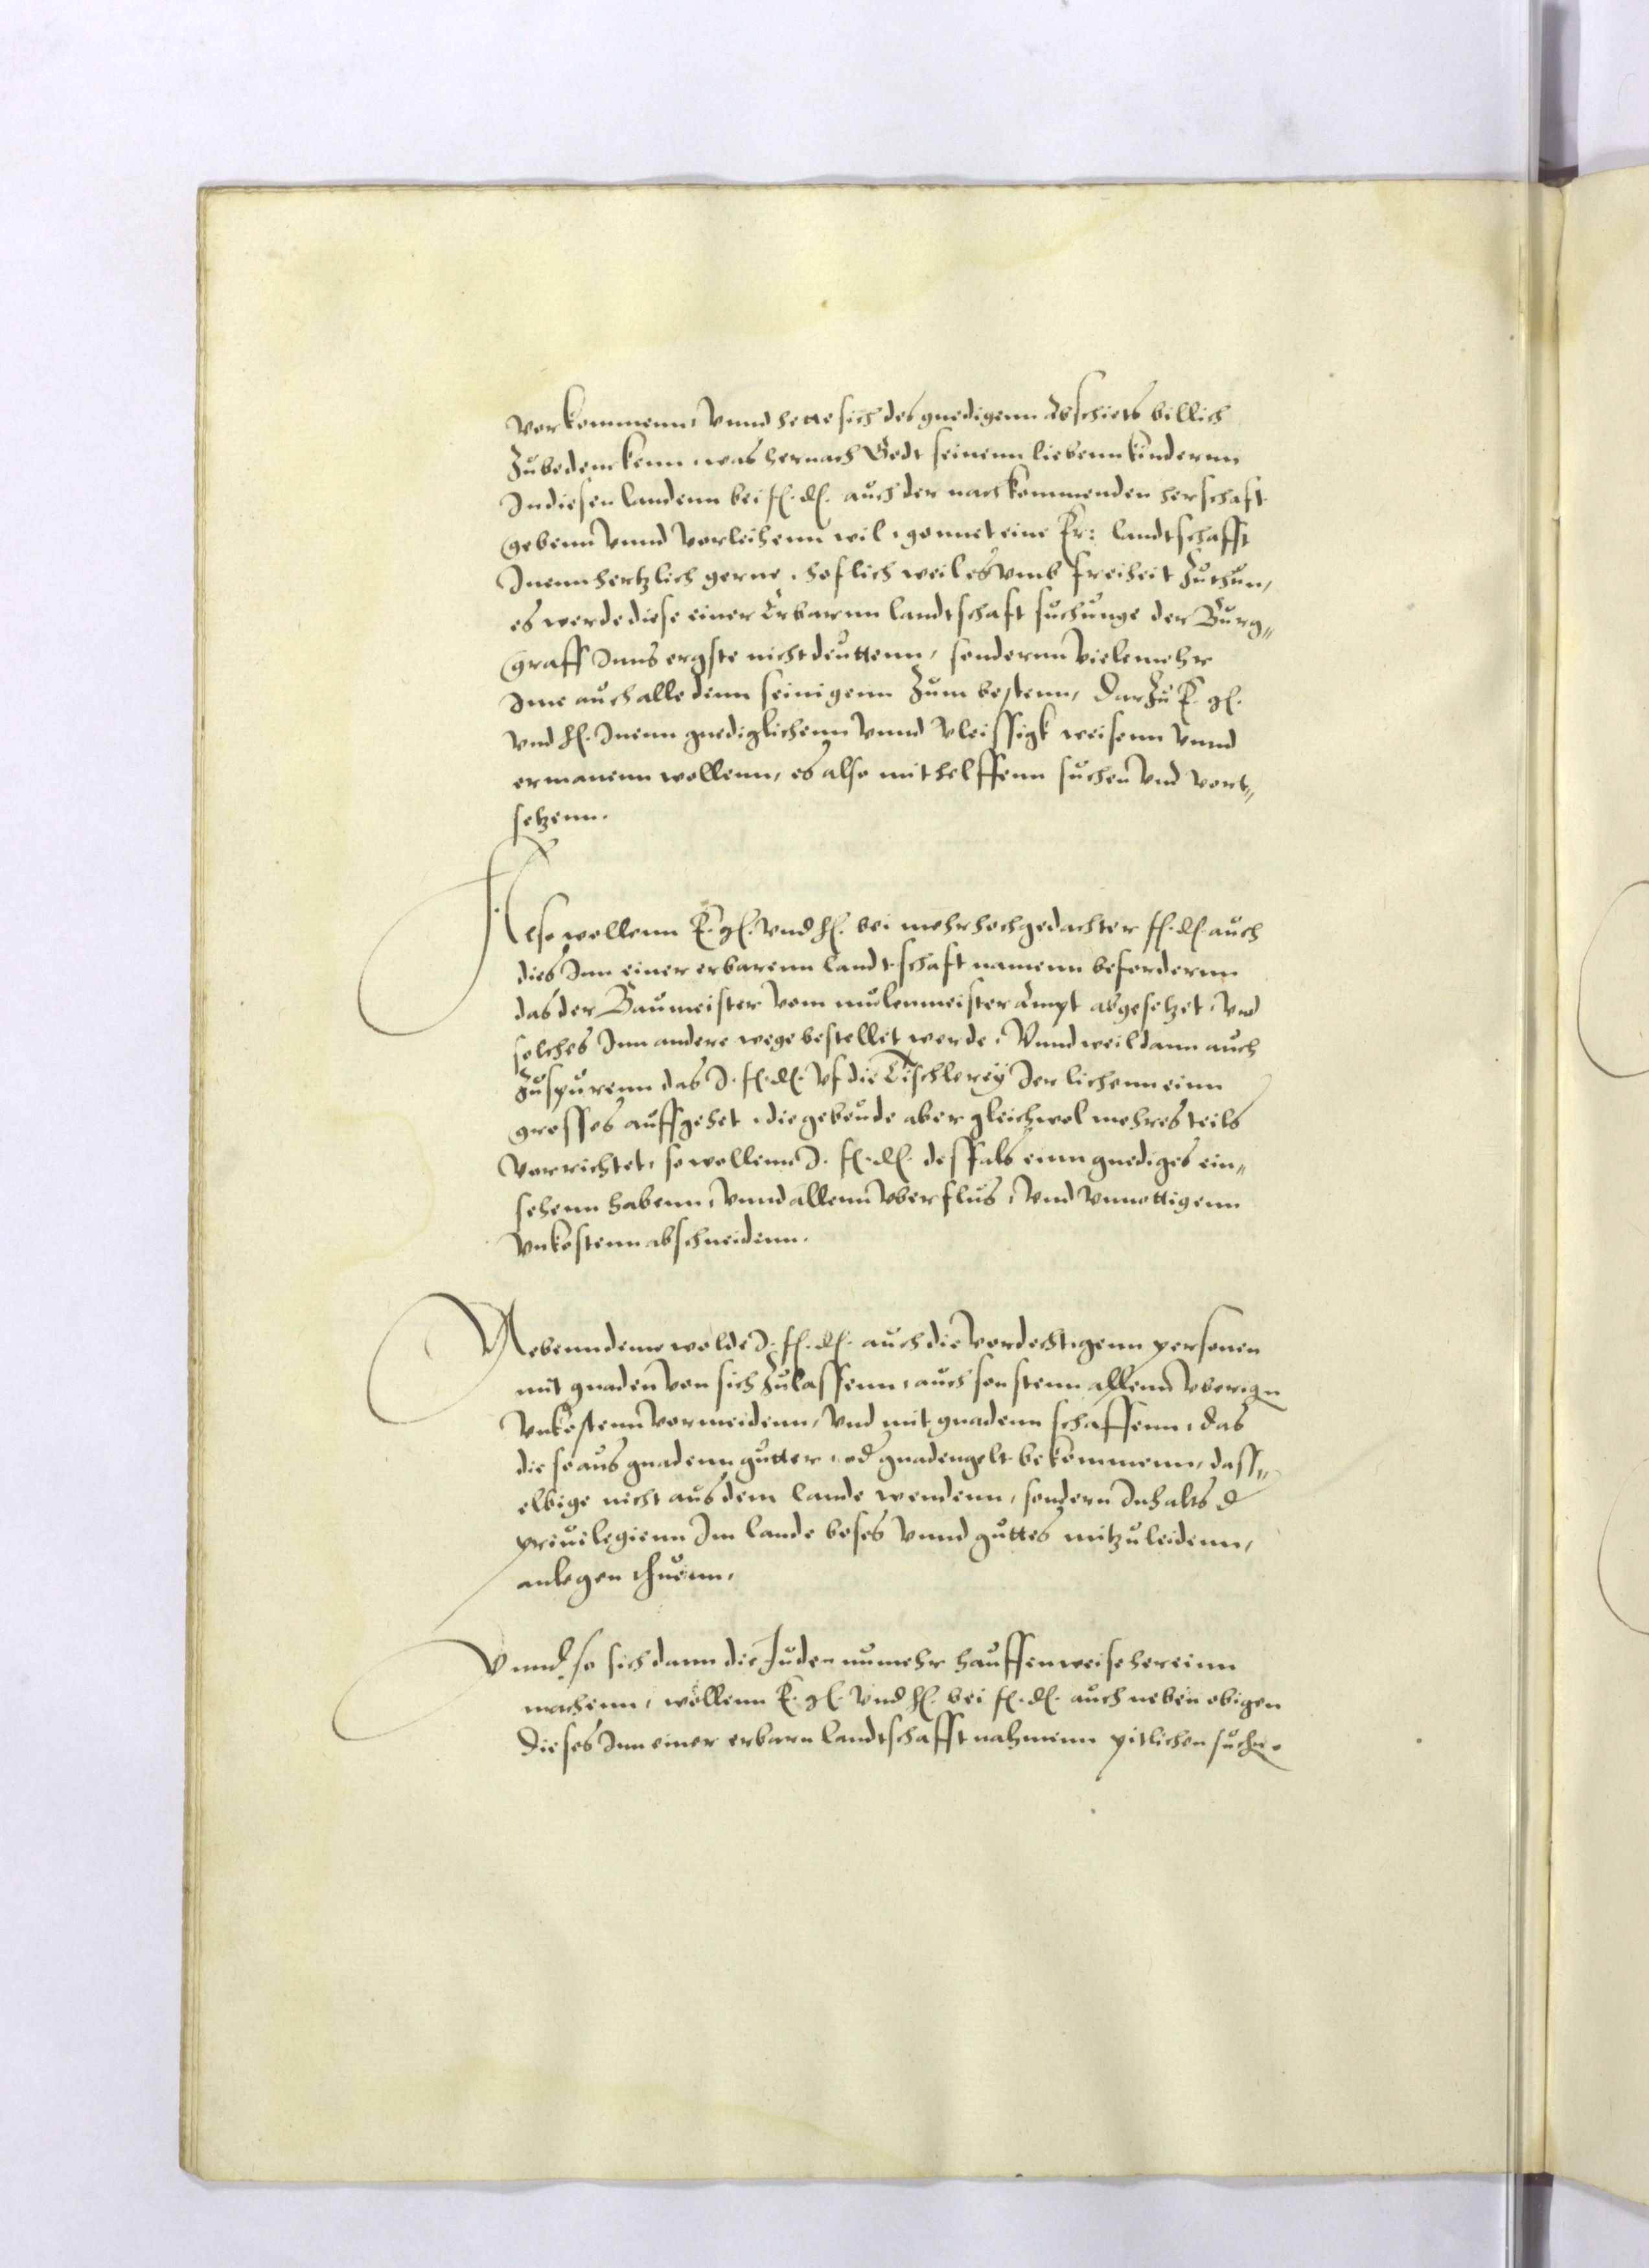 vorkommenn, vnnd hette sich des gnedigenn Abschiets billich
Zubedenckenn, was hernach Godt seinenn liebenn kindernn
In diesen landenn bei f. d. auch der nachkommenden herschaft
gebenn vnnd vorleihenn wil, gonnet eine Er: landtschafft
Inenn hertzlich gerne, hoflich weil es vmb freiheit Zuthun,
es werde diese einer Erbarnn landtschaft suchunge der Burg„
graff Inns ergste nicht deuttenn, sondernn vielemehr
Ime auch alle denn seinigenn Zum bestenn, darZu E. g.
vnd h. Inenn gnediglichenn vnnd vleissigk weisenn vnnd
ermanenn wollenn, es also mit helffenn suchen vnd vort„
setzenn.
Also wollenn E. g. vnd h. bei mehrhochgedachter f. d. auch
dies Inn einer erbarenn landtschaft namenn befordernn
das der Baumeister vom mulenmeister Ampt abgesetzet, vnd
solches Inn andere wege bestellet werde, Vnnd weil dann auch
Zuspurenn das I. f. d. vf die Tischlerey Jerlichenn einn
grosses auffgehet, die gebeude aber gleichwol mehres teils
vorrichtet, so wollenn I. f. d. desfals einn gnediges ein„
sehenn habenn, vnnd allenn vberflus, vnd vnnottigenn
vnkostenn abschneidenn.
Nebenn deme wolde I. f. d. auch die vordechtigenn personen
mit gnaden von sich Zulassenn, auch sonstenn allenn vberign
vnkostenn vormeidenn, vnd mit gnadenn schaffenn, das
die so aus gnadenn gutter, od gnadengelt bekommenn, dass„
elbige nicht aus dem lande wendenn, sondern Inhalts d
priuilegienn Im lande boses vnnd guttes mitzuleidenn,
anlegen thuenn.
Vnnd so sich dann die Juden numehr hauffenweise hereinn
machenn, wollenn E. g. vnd h. bei f. d. auch neben obigen
dieses Inn einer erbarn landtschafft nahmenn pitlichen suchn.